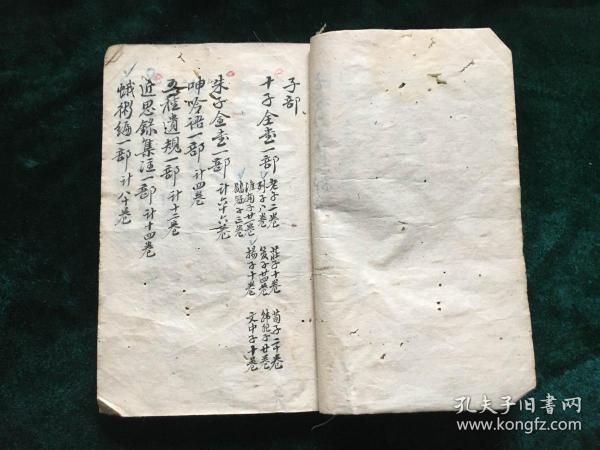 子部
十子全書一部
老子二卷 莊子十卷 荀子二十卷
列子八卷 管子廿四卷 韓非子廿卷
淮南子廿一卷 揚子十卷 文中子十卷
鶡冠子三卷
朱子全書一部 计六十六卷
呻吟语一部 计四卷
五種遺規一部 计十二卷
近思錄集注一部 计十四卷
蛾術编一部 计八十卷
孔夫子旧書网
www.kongfz.com